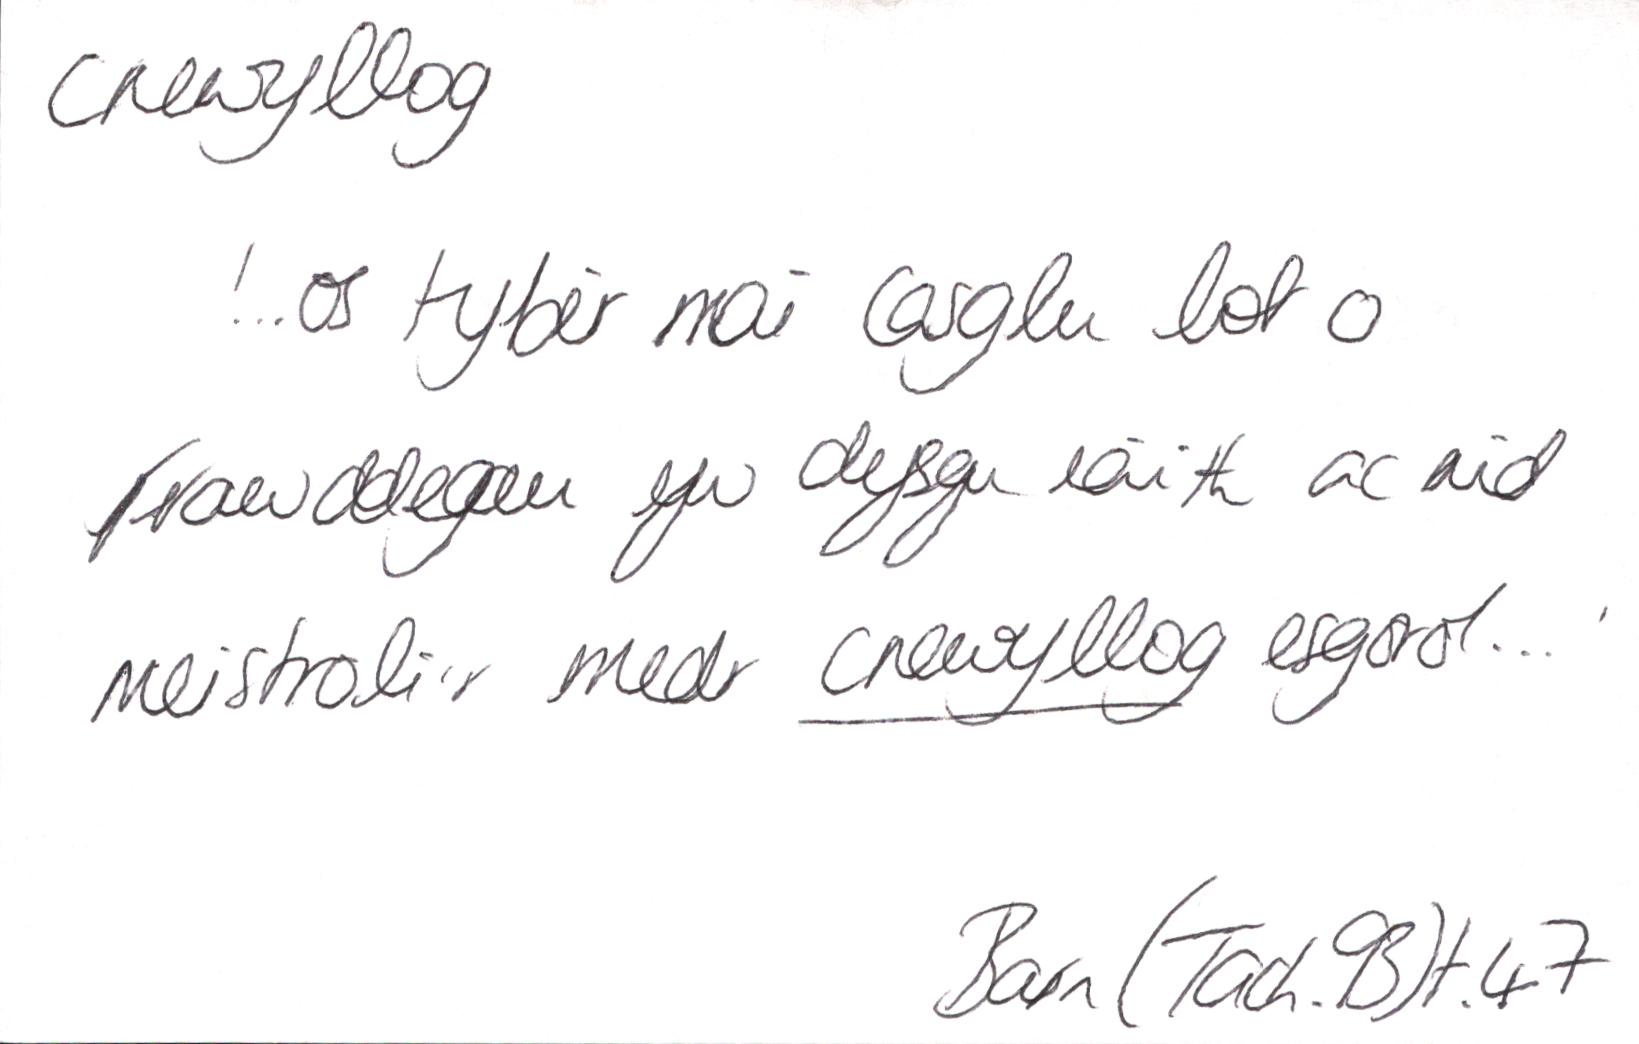 cnewyllog
'...os tybir mai casglu lot o
frawddegau yw dysgu iaith ac nid
meistroli'r medr cnewyllog esgorol...'
Barn (Tach. 93) t.47